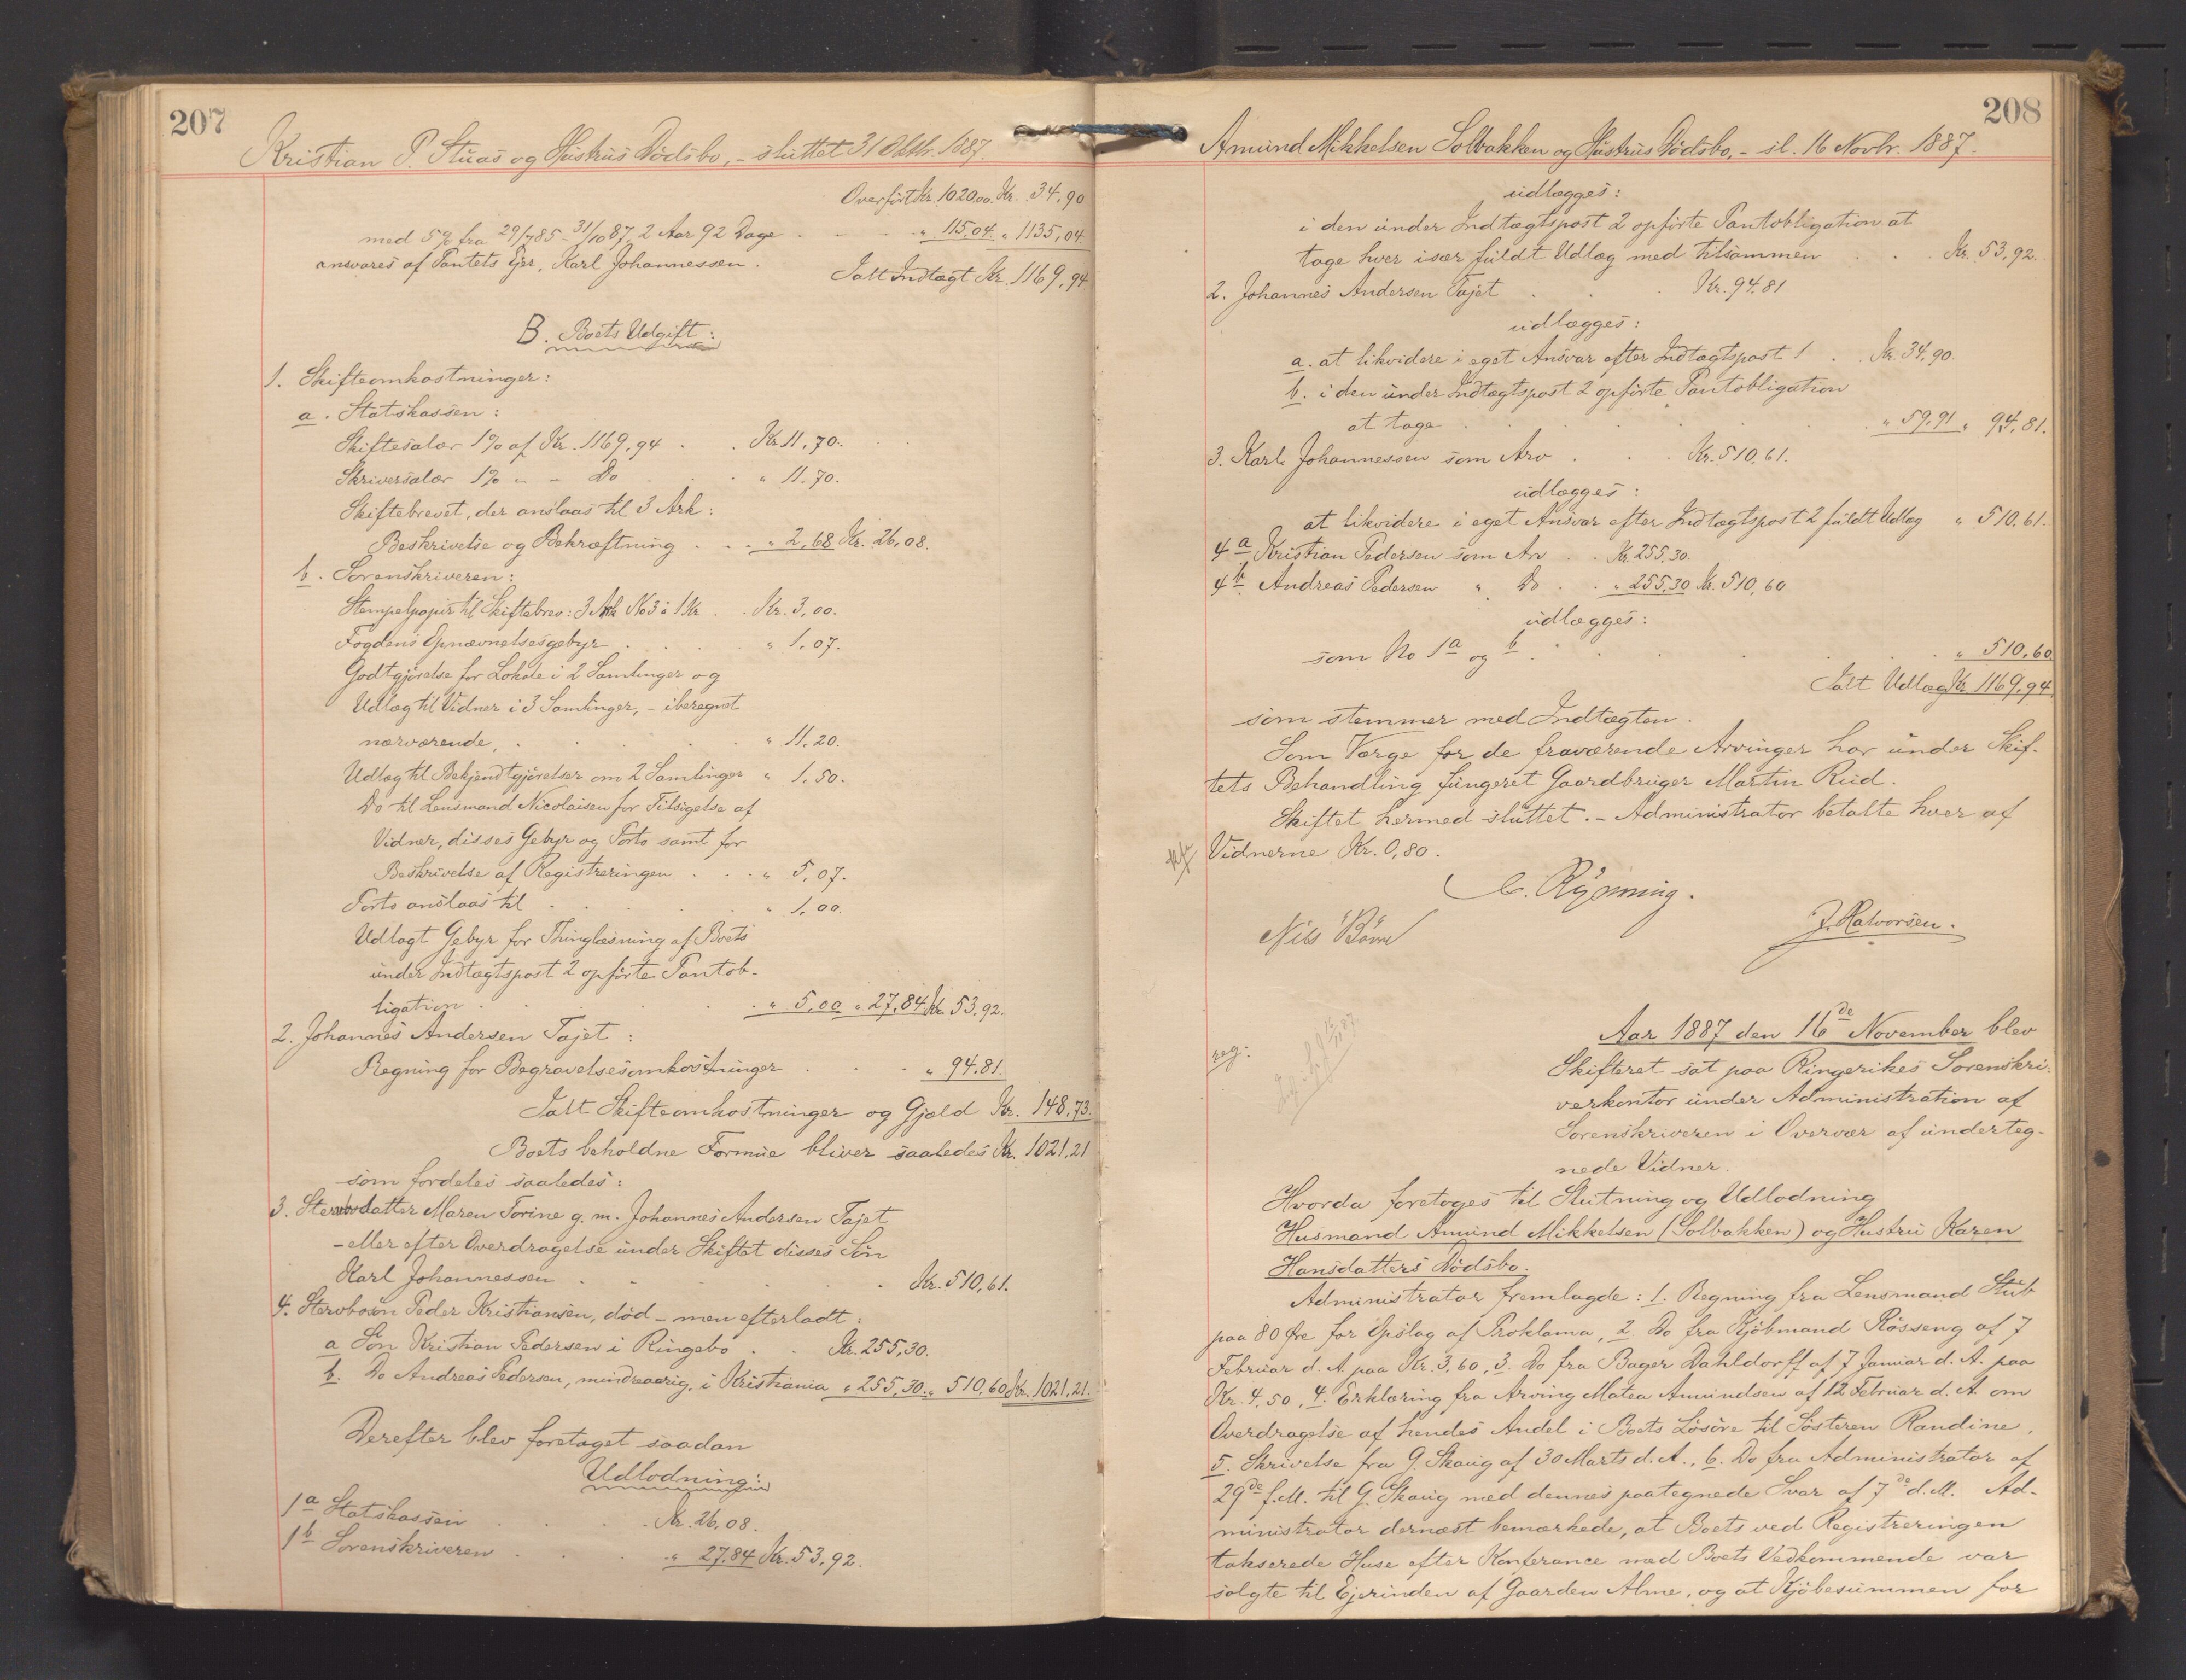 207
Kristian P. Stuas og Hustrus Dödsbo, - sluttet 31 Oktbr. 1887.
Overfört Kr. 1020.00. Kr. 34,90
med 5% fra 29/7 85 - 31/10 87, 2 Aar 92 Dage . . . „ 115,04 „ 1135,04
ansvares af Pantets Ejer, Karl Johannessen.
Ialt Indtægt Kr. 1169,94
B. Boets Udgift:
1. Skifteomkostninger:
a. Statskassen:
Skiftesalær 1% af Kr. 1169,94 . . Kr. 11,70.
Skriversalær 1% „ „ Do . . „ 11.70.
Skiftebrevet, der anslaas til 3 Ark:
Beskrivelse og Bekræftning . . . „ 2,68 Kr. 26,08.
b. Sorenskriveren:
Stempelpapir til Skiftebrev: 3 Ark No 3 á 1 Kr . . Kr. 3,00.
Fogdens Opnævnelsesgebyr . . . . „ 1,07.
Godtgjörelse for Lokale i 2 Samlinger og
Udlæg til Vidner i 3 Samlinger, - iberegnet
nærværende, . . . . . „ 11.20.
Udlæg til Bekjendtgjörelser om 2 Samlinger „ 1,50.
Do til Lensmand Nicolaisen for Tilsigelse af
Vidner, disses Gebyr og Porto samt for
Beskrivelse af Registreringen . . . „ 5,07.
Porto anslaas til . . . . . „ 1,00.
Udlagt Gebyr for Thinglæsning af Boets
under Indtægtspost 2 opförte Pantob-
ligation . . . . . „ 5,00 „ 27,84 Kr. 53,92.
2. Johannes Andersen Tajet:
Regning for Begravelsesomkostninger . . . „ 94.81.
Ialt Skifteomkostninger og Gjæld Kr. 148,73.
Boets beholdne Formue bliver saaledes Kr. 1021,21
som fordeles saaledes:
3. Stervbodatter Maren Torine g. m. Johannes Andersen Tajet
- eller efter Overdragelse under Skiftet disses Sön
Karl Johannessen . . . . . . Kr. 510,61.
4. Stervbosön Peder Kristiansen, död - men efterladt:
a Sön Kristian Pedersen i Ringebo . . Kr. 255,30.
b. Do Andreas Pedersen, mindreaarig, i Kristiania „ 255,30. „ 510,60 Kr. 1021,21.
Derefter blev foretaget saadan
Udlodning:
1a Statskassen . . . . Kr. 26,08.
1b Sorenskriveren . . . . „ 27,84 Kr. 53,92.
208
Amund Mikkelsen Solbakken og Hustrus Dödsbo, - sl. 16 Novbr. 1887.
udlægges:
i den under Indtægtspost 2 opförte Pantobligation at
tage hver især fuldt Udlæg med tilsammen . . . Kr. 53,92.
2. Johannes Andersen Tajet . . . Kr. 94.81
udlægges:
a. at likvidere i eget Ansvar efter Indtægtspost 1 . . Kr. 34,90.
b. i den under Indtægtspost 2 opförte Pantobligation
at tage . . . . . . „ 59,91 „ 94,81.
3. Karl Johannessen som Arv . . . Kr. 510,61.
udlægges:
at likvidere i eget Ansvar efter Indtægtspost 2 fuldt Udlæg „ 510,61.
4a Kristian Pedersen som Arv . . Kr. 255,30.
4b Andreas Pedersen „ Do . . „ 255,30 Kr. 510,60
udlægges:
som No 1a og b . . . . . „ 510,60
Ialt Udlæg Kr. 1169,94
som stemmer med Indtægten.
Som Værge for de fraværende Arvinger har under Skif-
tets Behandling fungeret Gaardbruger Martin Rud.
Skiftet hermed sluttet. - Administrator betalte hver af
Vidnerne Kr. 0,80.
C. Rynning.
Nils Börne
J. Halvorsen.
Aar 1887 den 16de November blev
reg:
Skifteret sat paa Ringerikes Sorenskri-
verkontor under Administration af
Sorenskriveren i Overvær af underteg-
nede Vidner.
Hvorda foretoges til Slutning og Udlodning
Husmand Amund Mikkelsen (Solbakken) og Hustru Karen
Hansdatters Dödsbo.
Administrator fremlagde: 1. Regning fra Lensmand Stub
paa 80 Øre for Opslag af Proklama, 2. Do fra Kjöbmand Rösseng af 7
Februar d. A. paa Kr. 3,60, 3. Do fra Bager Dahldorff af 7 Januar d. A. paa
Kr. 4,50, 4. Erklæring fra Arving Matea Amundsen af 12 Februar d. A. om
Overdragelse af hendes Andel i Boets Lösöre til Sösteren Randine,
5. Skrivelse fra G. Skaug af 30 Marts d. A., 6. Do fra Administrator af
29de f. M. til G. Skaug med dennes paategnede Svar af 7de d. M. Ad-
ministrator dernæst bemærkede, at Boets ved Registreringen
takserede Huse efter Konferance med Boets Vedkommende var
solgte til Ejerinden af Gaarden Alme, og at Kjöbesummen for